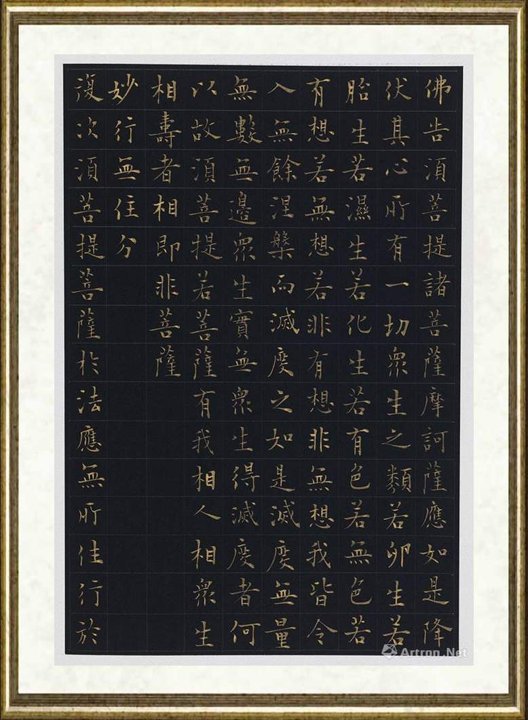 佛告須菩提諸菩薩摩訶薩應如是降
伏其心所有一切眾生之類若卵生若
胎生若濕生若化生若有色若無色若
有想若無想若非有想非無想我皆令
入無餘涅槃而滅度之如是滅度無量
無數無邊眾生實無眾生得滅度者何
以故須菩提若菩薩有我相人相眾生
相壽者相即非菩薩
妙行無住分
復次須菩提菩薩於法應無所住行於
Artron.Net